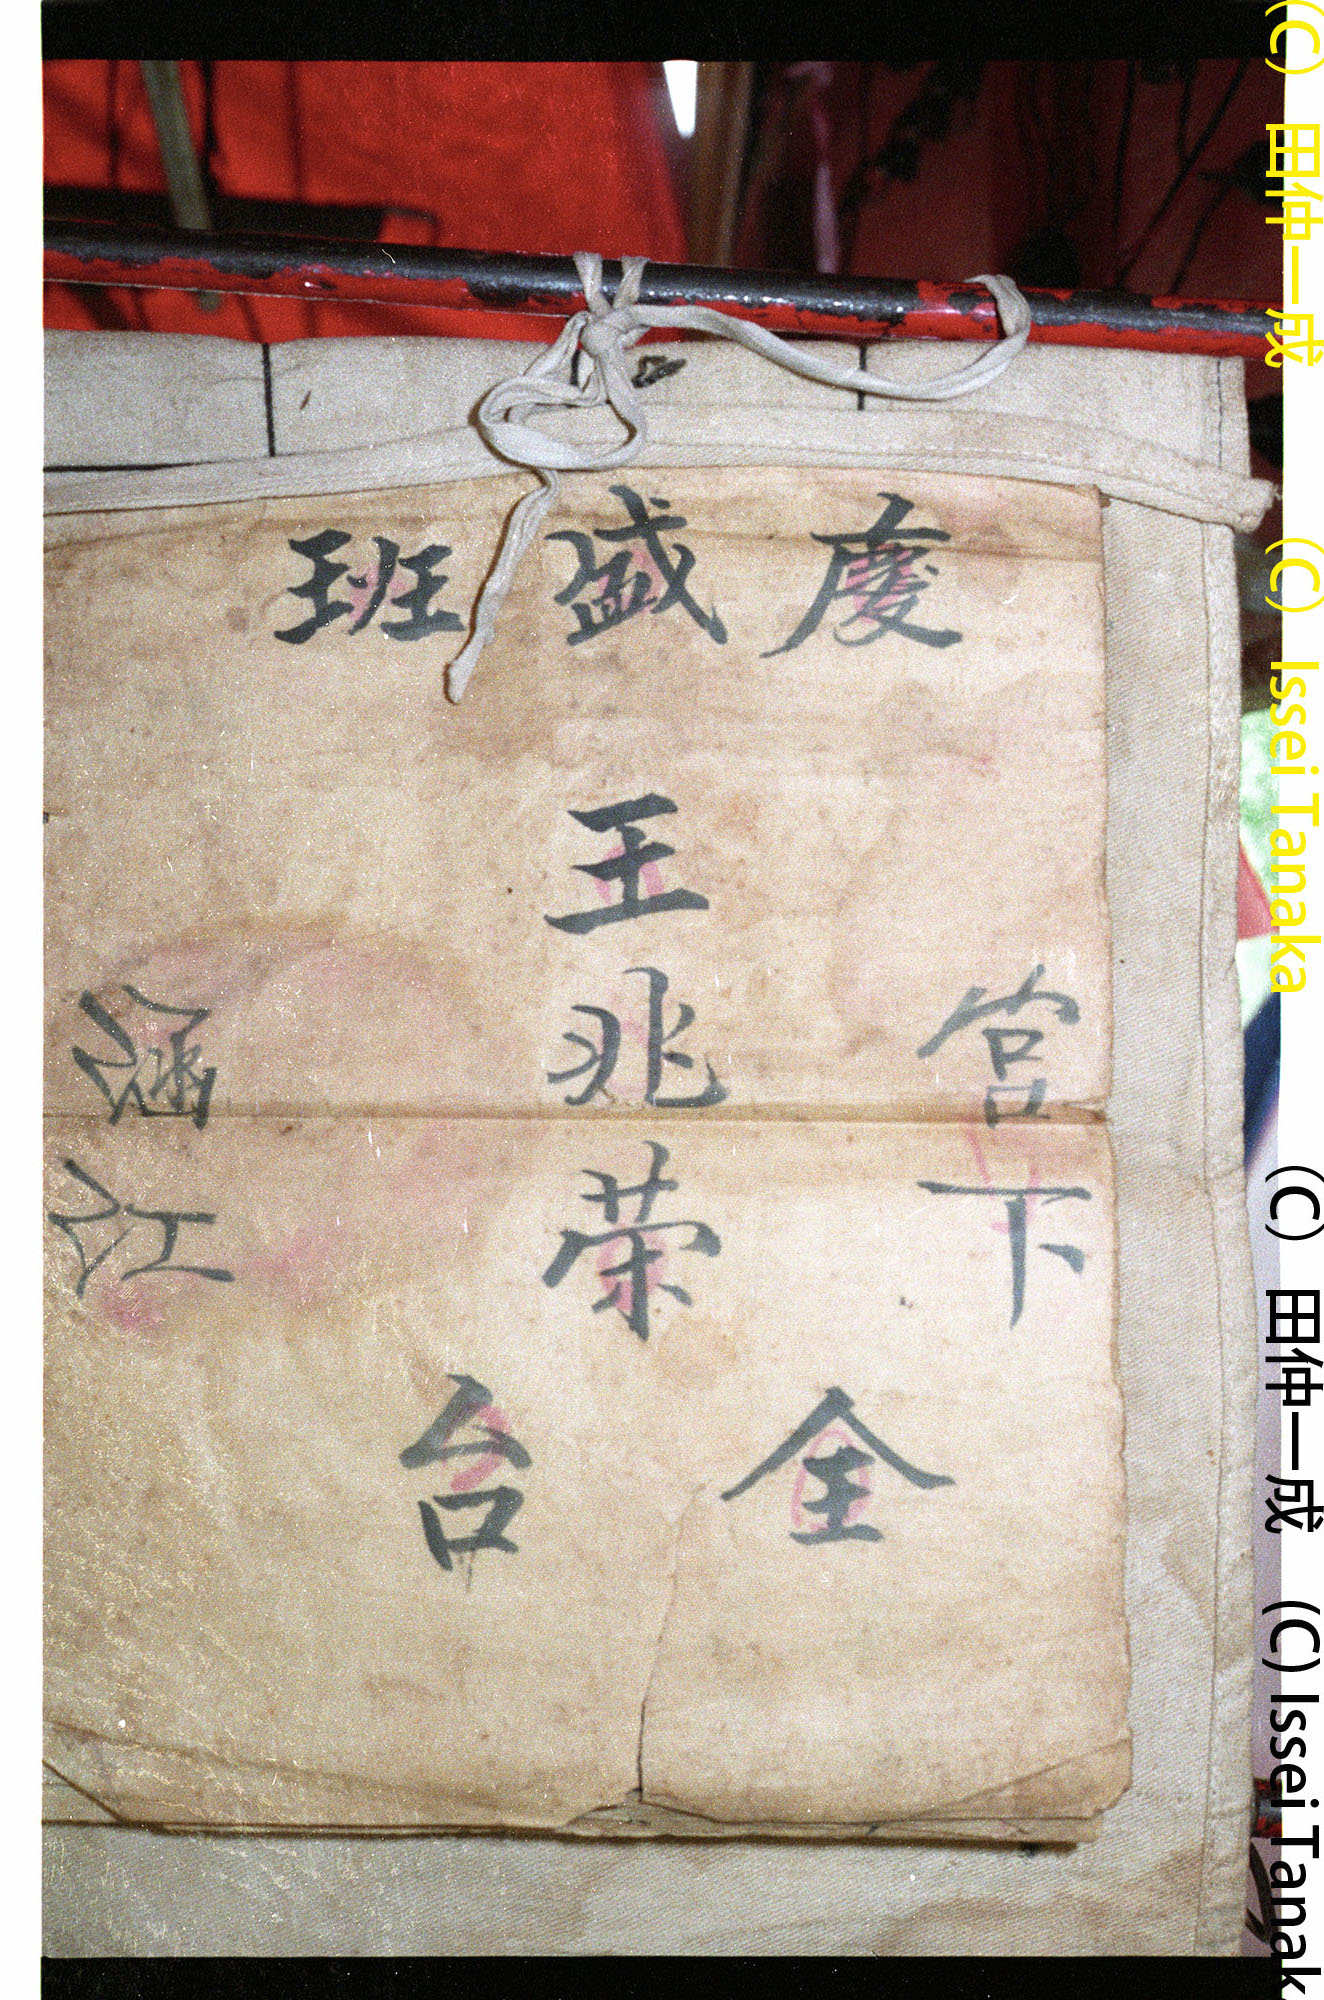 慶盛班
宮下
王兆荣
涵江
全台
(C) 田仲一成 (C) Issei Tanaka
(C) 田仲一成 (C) Issei Tanak